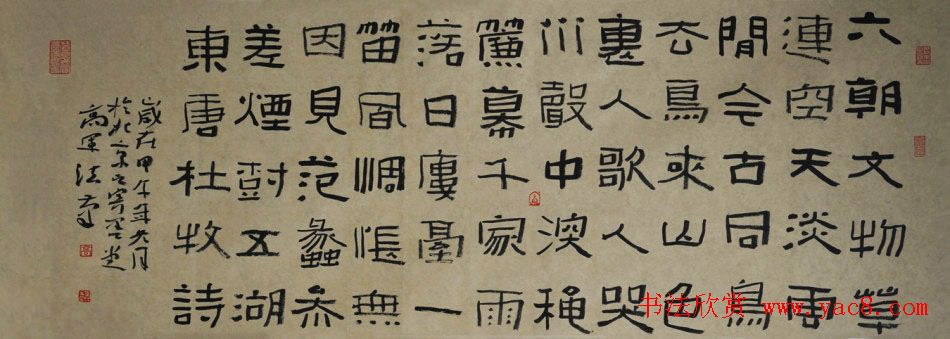 六朝文物草
連空天淡雲
閒今古同鳥
去鳥來山色
裏人歌人哭
水聲中深穐
簾幕千家雨
落日廔臺一
笛風惆悵無
因見范蠡參
差煙樹五湖
東唐杜牧詩
歲在甲午年
於北京
高軍法
书法欣赏 www.yac8.com